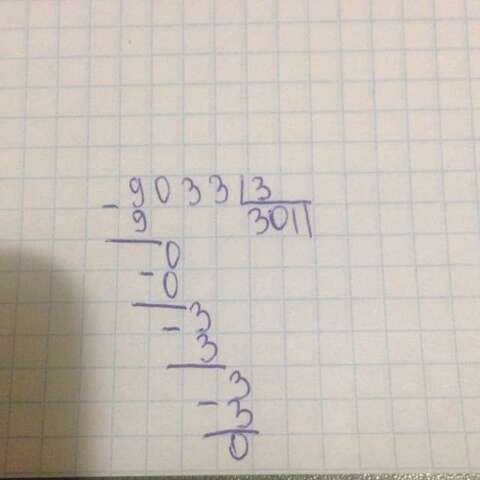 - 9033 | 3
9 3011
0
- 0
- 3
3
3
- 3
0